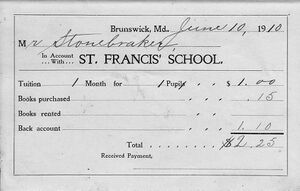 Brunswick, Md., June 10, 1910
Mr Stonebraker,
In Account With ST. FRANCIS' SCHOOL.
Tuition 1 Month for 1 Pupils $ 1.00
Books purchased .15
Books rented
Back account 1.10
Total $2.25
Received Payment,